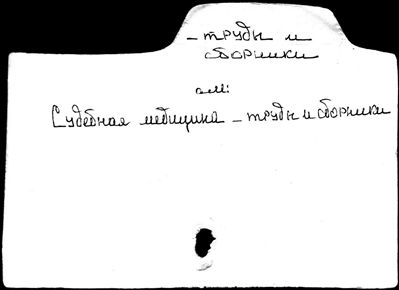 – труды и
сборники
см:
Судебная медицина – труды и сборники